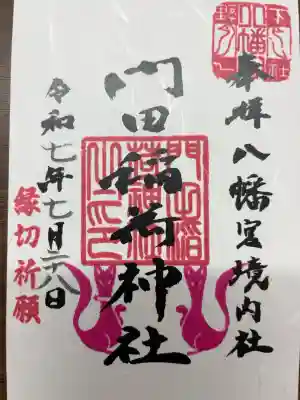 奉拝 八幡宮境内社
門田稲荷神社
令和七年七月二十八日
縁切祈願